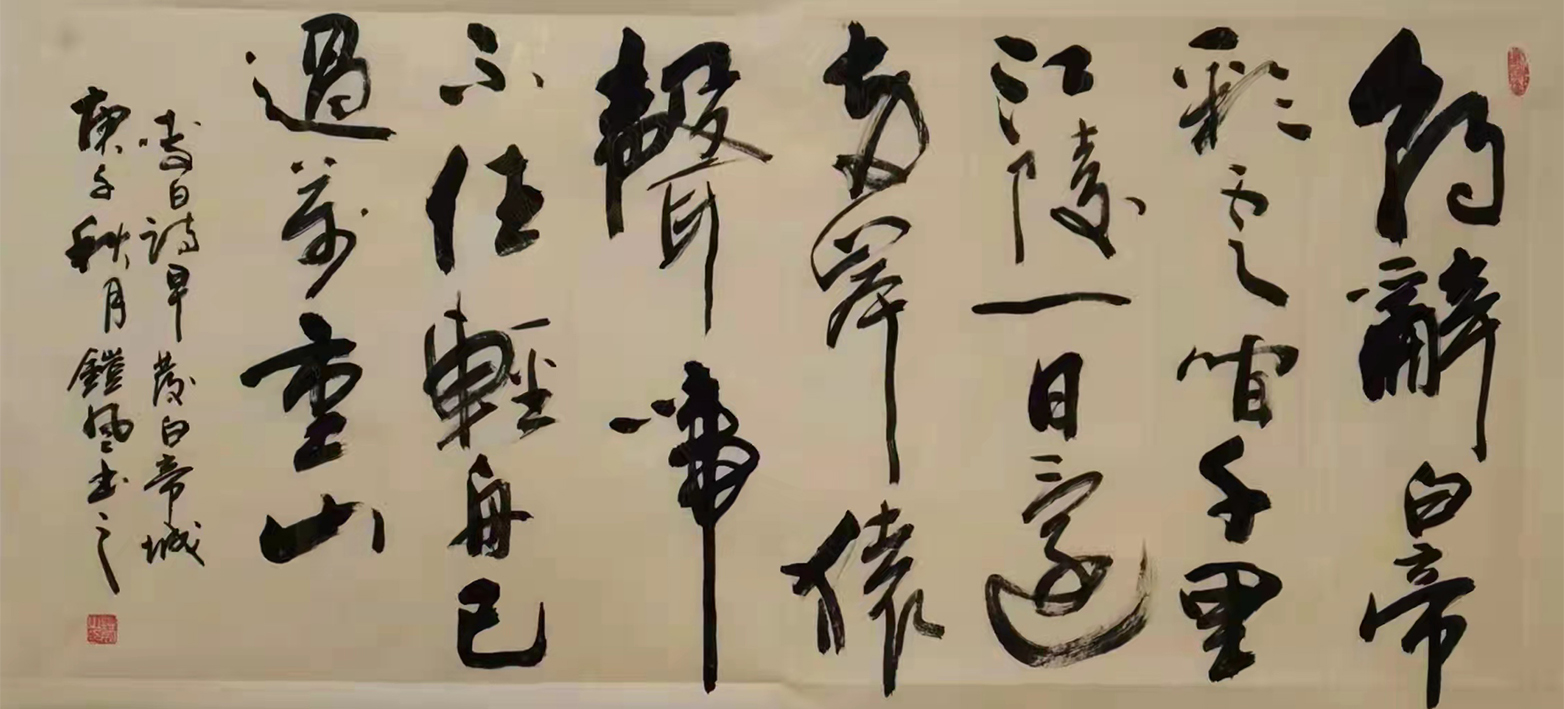 朝辭白帝
彩雲間千里
江陵一日還
兩岸猿
聲啼
不住輕舟已
過萬重山
李白詩早發白帝城
庚子秋月鎧風書之